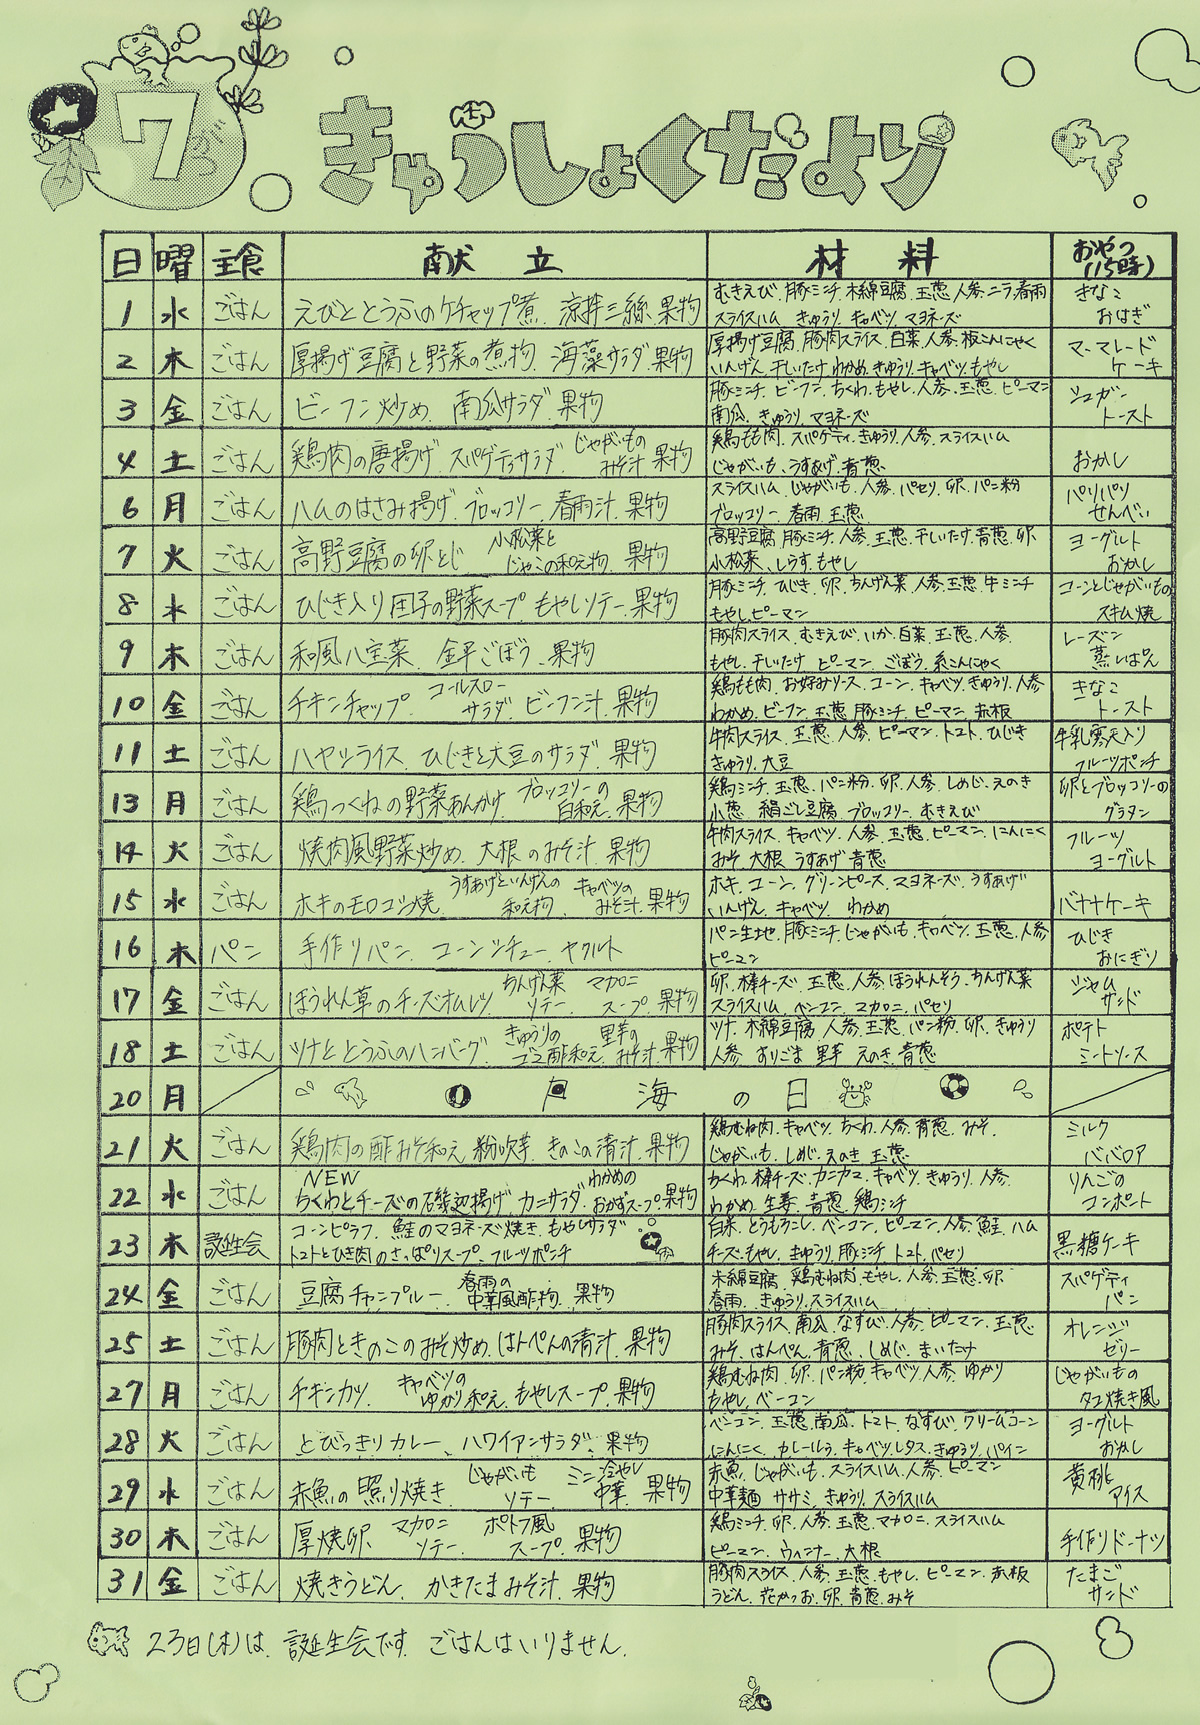 7がつ
きゅうしょくだより
日 曜 主食 献立 材料 おやつ(15時)
1 水 ごはん えびととうふのケチャップ煮、涼拌三絲、果物 むきえび、豚ミンチ、木綿豆腐、玉葱、人参、ニラ、春雨
スライスハム、きゅうり、キャベツ、マヨネーズ きなこおはぎ
2 木 ごはん 厚揚げ豆腐と野菜の煮物、海藻サラダ、果物 厚揚げ豆腐、豚肉スライス、白菜、人参、板こんにゃく
いんげん、干しいたけ、わかめ、きゅうり、キャベツ、もやし マーマレードケーキ
3 金 ごはん ビーフン炒め、南瓜サラダ、果物 豚ミンチ、ビーフン、ちくわ、もやし、人参、玉葱、ピーマン
南瓜、きゅうり、マヨネーズ シュガートースト
4 土 ごはん 鶏肉の唐揚げ、スパゲティサラダ、じゃがいものみそ汁、果物 鶏もも肉、スパゲティ、きゅうり、人参、スライスハム
じゃがいも、うすあげ、青葱 おかし
6 月 ごはん ハムのはさみ揚げ、ブロッコリー、春雨汁、果物 スライスハム、じゃがいも、人参、パセリ、卵、パン粉
ブロッコリー、春雨、玉葱 パリパリせんべい
7 火 ごはん 高野豆腐の卵とじ 小松菜とじゃこの和え物、果物 高野豆腐、豚ミンチ、人参、玉葱、干しいたけ、青葱、卵
小松菜、しらす、もやし ヨーグルトおかし
8 水 ごはん ひじき入り団子の野菜スープ、もやしソテー、果物 豚ミンチ、ひじき、卵、ちんげん菜、人参、玉葱、牛ミンチ
もやし、ピーマン コーンとじゃがいものスキム焼
9 木 ごはん 和風八宝菜、金平ごぼう、果物 豚肉スライス、むきえび、いか、白菜、玉葱、人参、
もやし、干しいたけ、ピーマン、ごぼう、糸こんにゃく レーズン蒸しぱん
10 金 ごはん チキンチャップ、コールスローサラダ、ビーフン汁、果物 鶏もも肉、お好みソース、コーン、キャベツ、きゅうり、人参
わかめ、ビーフン、玉葱、豚ミンチ、ピーマン、赤板 きなこトースト
11 土 ごはん ハヤシライス、ひじきと大豆のサラダ、果物 牛肉スライス、玉葱、人参、ピーマン、トマト、ひじき
きゅうり、大豆 牛乳寒天入りフルーツポンチ
13 月 ごはん 鶏つくねの野菜あんかけ、ブロッコリーの白和え、果物 鶏ミンチ、玉葱、パン粉、卵、人参、しめじ、えのき
小葱、絹ごし豆腐、ブロッコリー、むきえび 卵とブロッコリーのグラタン
14 火 ごはん 焼肉風野菜炒め、大根のみそ汁、果物 牛肉スライス、キャベツ、人参、玉葱、ピーマン、にんにく
みそ、大根、うすあげ、青葱 フルーツヨーグルト
15 水 ごはん ホキのモロコシ焼、うすあげといんげんの和え物、キャベツのみそ汁、果物 ホキ、コーン、グリーンピース、マヨネーズ、うすあげ
いんげん、キャベツ、わかめ バナナケーキ
16 木 パン 手作りパン、コーンシチュー、ヤクルト パン生地、豚ミンチ、じゃがいも、キャベツ、玉葱、人参
ピーマン ひじきおにぎり
17 金 ごはん ほうれん草のチーズオムレツ、ちんげん菜ソテー、マカロニスープ、果物 卵、棒チーズ、玉葱、人参、ほうれんそう、ちんげん菜
スライスハム、ベーコン、マカロニ、パセリ ジャムサンド
18 土 ごはん ツナととうふのハンバーグ、きゅうりのゴマ酢和え、里芋のみそ汁、果物 ツナ、木綿豆腐、人参、玉葱、パン粉、卵、きゅうり
人参、すりごま、里芋、えのき、青葱 ポテトミートソース
20 月 海の日
21 火 ごはん 鶏肉の酢みそ和え、粉吹芋、きのこの清汁、果物 鶏むね肉、キャベツ、ちくわ、人参、青葱、みそ、
じゃがいも、しめじ、えのき、玉葱 ミルクババロア
22 水 ごはん NEW ちくわとチーズの磯辺揚げ、カニサラダ、わかめのおかずスープ、果物 ちくわ、棒チーズ、カニカマ、キャベツ、きゅうり、人参、
わかめ、生姜、青葱、鶏ミンチ りんごのコンポート
23 木 誕生会 コーンピラフ、鮭のマヨネーズ焼き、もやしサラダ
トマトとひき肉のさっぱりスープ、フルーツポンチ 白米、とうもろこし、ベーコン、ピーマン、人参、鮭、ハム
チーズ、もやし、きゅうり、豚ミンチ、トマト、パセリ 黒糖ケーキ
24 金 ごはん 豆腐チャンプルー、春雨の中華風酢物、果物 木綿豆腐、鶏むね肉、もやし、人参、玉葱、卵
春雨、きゅうり、スライスハム スパゲティパン
25 土 ごはん 豚肉ときのこのみそ炒め、はんぺんの清汁、果物 豚肉スライス、南瓜、なすび、人参、ピーマン、玉葱
みそ、はんぺん、青葱、しめじ、まいたけ オレンジゼリー
27 月 ごはん チキンカツ、キャベツのゆかり和え、もやしスープ、果物 鶏むね肉、卵、パン粉、キャベツ、人参、ゆかり
もやし、ベーコン じゃがいものタコ焼き風
28 火 ごはん とびっきりカレー、ハワイアンサラダ、果物 ベーコン、玉葱、南瓜、トマト、なすび、クリームコーン
にんにく、カレールゥ、キャベツ、レタス、きゅうり、パイン ヨーグルトおかし
29 水 ごはん 赤魚の照り焼き、じゃがいもソテー、ミニ冷やし中華、果物 赤魚、じゃがいも、スライスハム、人参、ピーマン
中華麺、ササミ、きゅうり、スライスハム 黄桃とアイス
30 木 ごはん 厚焼卵、マカロニソテー、ポトフ風スープ、果物 鶏ミンチ、卵、人参、玉葱、マカロニ、スライスハム
ピーマン、ウィンナー、大根 手作りドーナツ
31 金 ごはん 焼きうどん、かきたまみそ汁、果物 豚肉スライス、人参、玉葱、もやし、ピーマン、赤板
うどん、花かつお、卵、青葱、みそ たまごサンド
23日(木)は、誕生会です。ごはんはいりません。